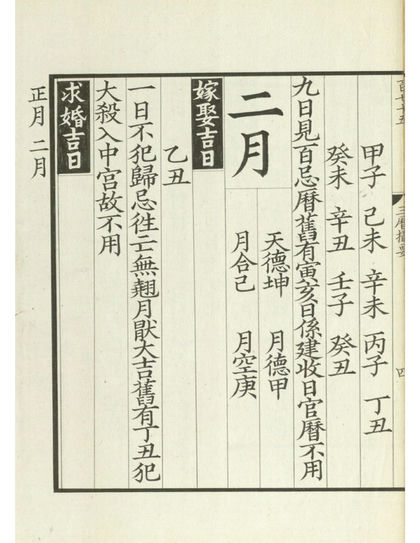 三曆撮要
四
甲子 己未 辛未 丙子 丁丑
癸未 辛丑 壬子 癸丑
九日見百忌曆舊有寅亥日係建收日官曆不用
二月
天德坤 月德甲
月合己 月空庚
嫁娶吉日
乙丑
一日不犯歸忌徃亡無翹月厭大吉舊有丁丑犯
大殺入中宮故不用
求婚吉日
正月 二月